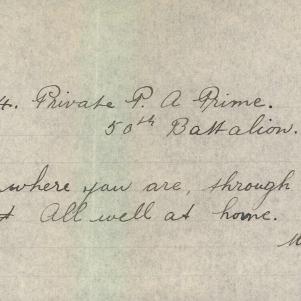 4. Private P. A Prime.
50th Battalion.
where you are, through
t All well at home.
M